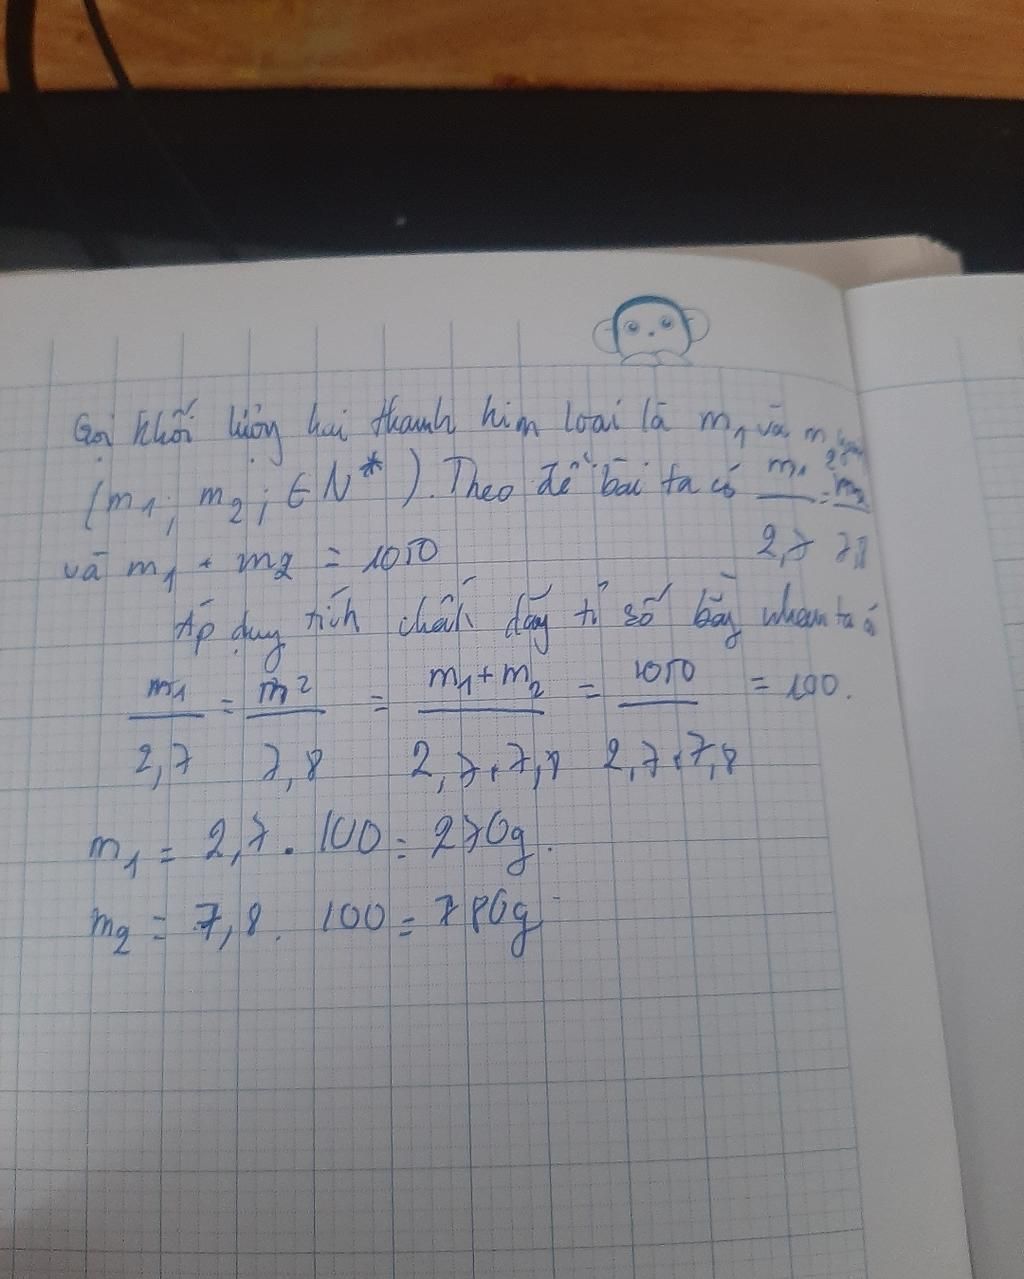 Gọi khối lượng hai thanh kim loại là m1 và m2
(m1; m2; ∈ N*). Theo đề bài ta có m1/2,7 = m2/7,8
và m1 + m2 = 1050
Áp dụng tích chất dãy tỉ số bằng nhau ta có
m1/2,7 = m2/7,8 = (m1+m2)/(2,7+7,8) = 1050/(2,7+7,8) = 100.
m1 = 2,7 . 100 = 270g.
m2 = 7,8 . 100 = 780g